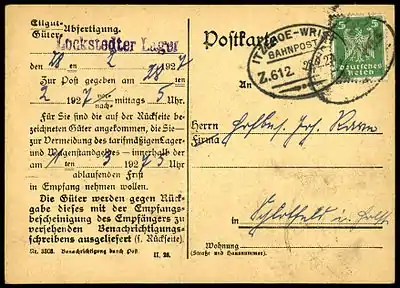 Eilgut-
Güter-Abfertigung.
Lockstedter Lager
den 28 ten 2 1927
Zur Post gegeben am 28 ten
2 1927 vor- nach- mittags 5 Uhr.
Für Sie sind die auf der Rückseite be-
zeichneten Güter angekommen, die Sie –
zur Vermeidung des tarifmäßigen Lager-
und Wagenstandgeldes – innerhalb der
am ten 3 1927 5 Uhr
ablaufenden Frist
in Empfang nehmen wollen.
Die Güter werden gegen Rück-
gabe dieses mit der Empfangs-
bescheinigung des Empfängers zu
versehenden Benachrichtigungs-
schreibens ausgeliefert (s. Rückseite).
Nr. 3306. Benachrichtigung durch Post. II. 26.
Postkarte
ITZEHOE-WRI
BAHNPOST
Z.612
5
Deutsches
Reich
An
Herrn
Firma
in
Wohnung
(Straße und Hausnummer)